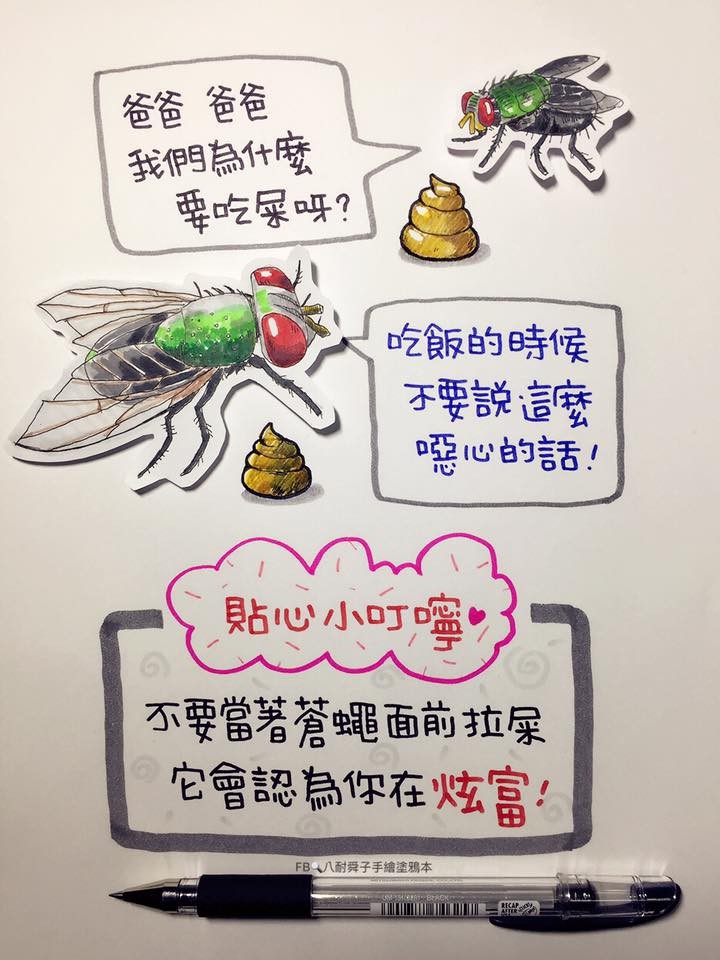 爸爸 爸爸
我們為什麼
要吃屎呀?
吃飯的時候
不要說這麼
噁心的話!
貼心小叮嚀
不要當著蒼蠅面前拉屎
它會認為你在炫富!
FB 八耐舜子手繪塗鴉本
BLACK
RECAP
AFTER